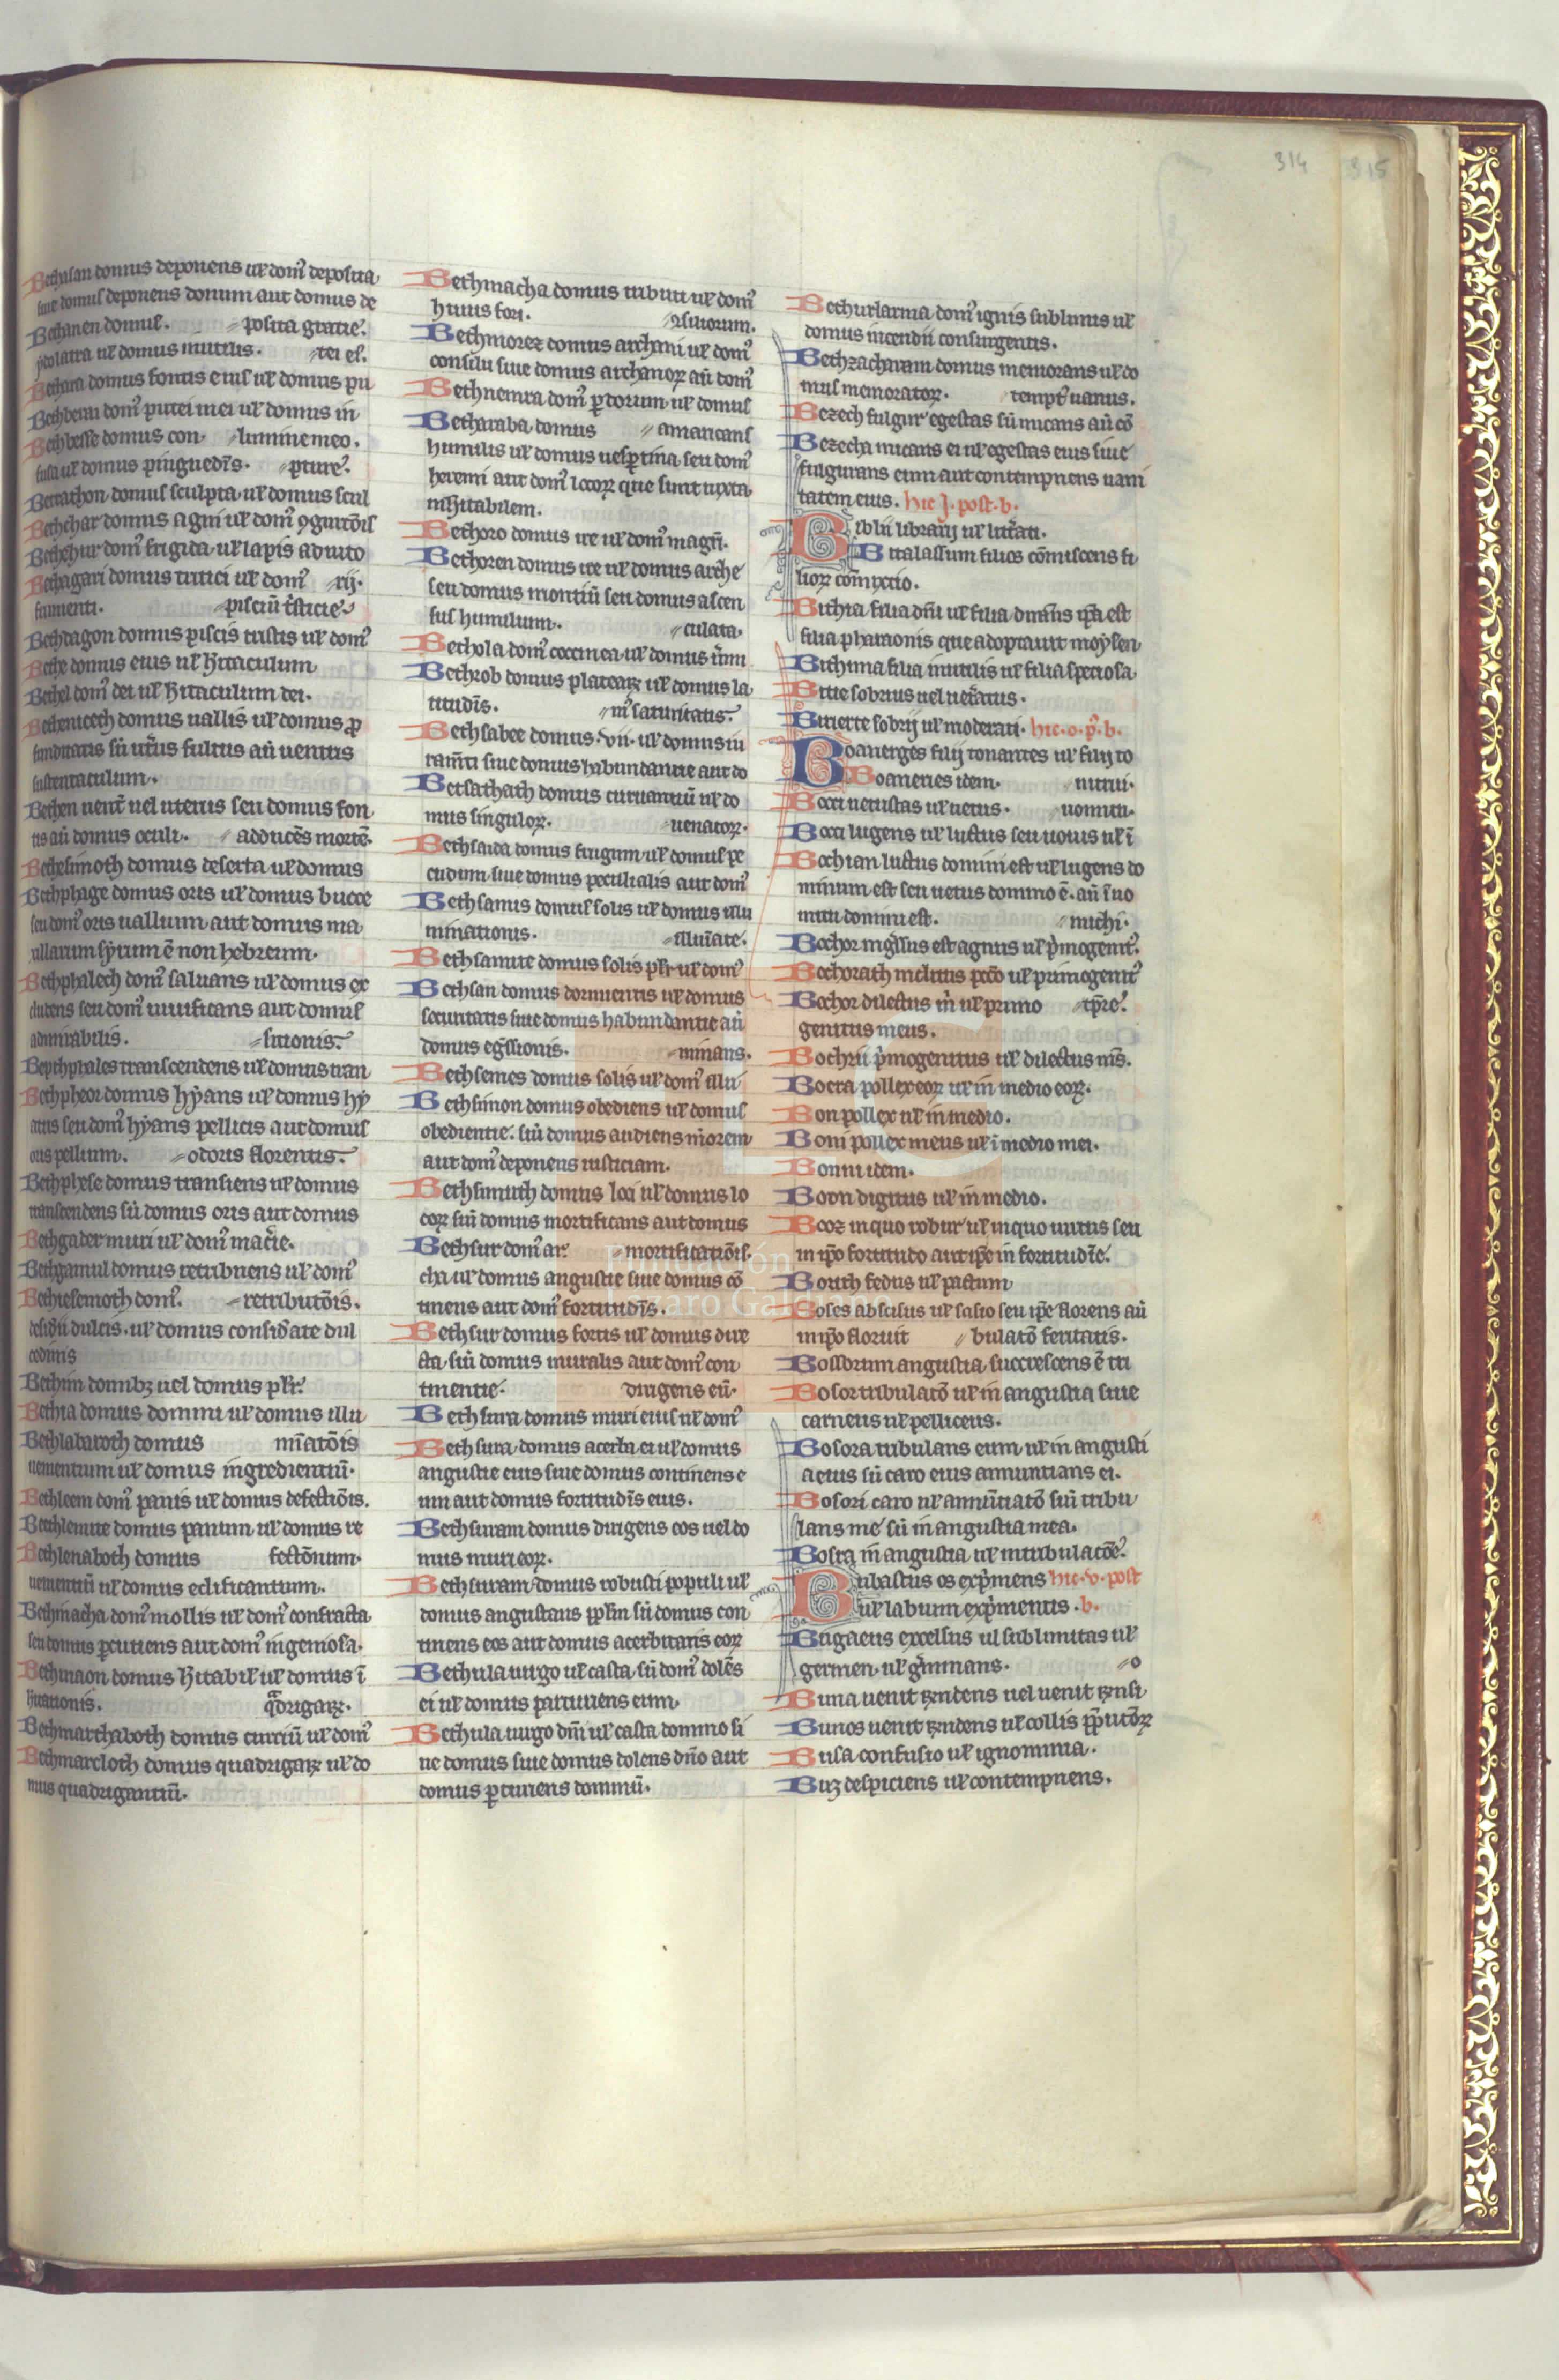 314 315
Bethasan domus deponens ul' dom9 deposita
siue domus deponens donum aut domus de
Bethanen domus. posita gratie.
ydolatra ul' domus inutilis. tei ei9.
Bethara domus fontis eius ul' domus pu
Bethberai dom9 putei mei ul' domus in
Bethbesse domus con lumine meo.
fusa ul' domus pinguedis. pture.
Betachon domus sculpta ul' domus scul
Bethchar domus agni ul' dom9 9gnitōis
Bethchur dom9 frigida ul' lapis adiuto
Bethagari domus tritici ul' dom9 rij.
frumenti. pisciū tsticie
Bethdagon domus piscis tristis ul' dom9
Bethe domus eius ul' hitaculum
Bethel dom9 dei ul' hitaculum dei.
Bethemech domus uallis ul' domus pro
funditatis siu utus fultus aū uentus
sustentaculum.
Bethen uent' uel uterus seu domus fon
tis aū domus oculi. adducēs mortē.
Bethesimoth domus deserta ul' domus
Bethphage domus oris ul' domus bucce
seu dom9 oris uallium aut domus ma
xillarum syrum ē non hebreum.
Bethphalech dom9 saluans ul' domus ex
cludens seu dom9 uiuificans aut domus
admirabilis. sitionis.
Bepthphales transcendens ul' domus tran
Bethpheor domus hyans ul' domus hy
atus seu dom9 hyans pellicis aut domus
oris pellium. odoris florentis.
Bethphese domus transiens ul' domus
transcendens siu domus oris aut domus
Bethgader muri ul' dom9 macie.
Bethgamul domus retribuens ul' dom9
Bethiesemoth dom9. retributōis.
desidii dulcis. ul' domus considate dul
cedinis
Bethim domibz uel domus pl'r.
Bethia domus domini ul' domus illu
Bethlabaroth domus minatōis
uementium ul' domus ingredientiū.
Bethleem dom9 panis ul' domus defectiōis.
Bethlemite domus panum ul' domus re
Bethlenaboth domus fectōnum.
uementiū ul' domus edificantium.
Bethmacha dom9 mollis ul' dom9 confracta
seu domus percutiens aut dom9 ingeniosa.
Bethmaon domus hitabil' ul' domus ī
hitationis. qadrigarz.
Bethmarchaboth domus curriū ul' dom9
Bethmarcloth domus quadrigarz ul' do
mus quadrigantiū.
Bethmacha domus tributi ul' dom9
huius fori. 9siliorum.
Bethmorez domus archani ul' dom9
consilii siue domus archanorz aū dom9
Bethnemra dom9 pardorum ul' domus
Betharaba domus amaricans
humilis ul' domus uespertina seu dom9
heremi aut dom9 locorz que sunt iuxta
inhitabilem.
Bethoro domus ire ul' dom9 magn̄.
Bethoren domus ire ul' domus arche
seu domus montiū seu domus ascen
sus humilum. culata.
Bethola dom9 coccinea ul' domus ūmi
Bethrob domus platearz ul' domus la
titudis. ni saturitatis.
Bethsabee domus .vii. ul' domus iu
ramti siue domus habundantie aut do
Betsathath domus curuantiū ul' do
mus singulorz. uenatorz.
Bethsaida domus frugum ul' domus pe
cudum siue domus peculialis aut dom9
Bethsamis domus solis ul' domus illu
minationis. illuīate.
Bethsamite domus solis pl'r ul' dom9
Bethsan domus dormientis ul' domus
securitatis siue domus habundantie aū
domus egssionis. minans.
Bethsemes domus solis ul' dom9 illu
Bethsimon domus obediens ul' domus
obedientie. siu domus audiens morem
aut dom9 deponens iusticiam.
Bethsimith domus loci ul' domus lo
corz siu domus mortificans aut domus
Bethsur dom9 ar mortificatiōis.
cha ul' domus angustie siue domus cō
tinens aut dom9 fortitudis.
Bethsur domus fortis ul' domus dire
cta siu domus muralis aut dom9 con
tinentie. dirigens eū.
Bethsura domus muri eius ul' dom9
Bethsura domus acerba ei ul' domus
angustie eius siue domus continens e
um aut domus fortitudis eius.
Bethsuram domus dirigens eos uel do
mus muri eorz.
Bethsuram domus robusti populi ul'
domus angustians ppl'm siu domus con
tinens eos aut domus acerbitatis eorz
Bethula uirgo ul' casta siu dom9 dolēs
ei ul' domus parturiens eum.
Bethula uirgo dni ul' casta domino si
ne domus siue domus dolens dno aut
domus parturiens dominū.
Bethurlarma dom9 ignis sublimis ul'
domus incendii consurgentis.
Bethzacharam domus memorans ul' do
mus memorator. tempt9 uanus.
Bezech fulgur egestas siu micans aū cō
Bezecha micans ei ul' egestas eius siue
fulgurans eum aut contempnens uani
tatem eius. hic J. post .b.
Biblii librarij ul' litati.
Bitalassum filios cōmiscens fi
liorz cōmixtio.
Bithia filia dni ul' filia dominans ipa est
filia pharaonis que adoptauit moysen
Bithima filia inutilis ul' filia speciosa.
Bitie sobrius uel ueratus.
Biuerte sobrij ul' moderati. hic .o. p9 .b.
Boanerges filij tonantes ul' filij to
Boaneries idem. nitrui.
Bocci uetustas ul' uetus. uomiti.
Bocci lugens ul' luctus seu uouis ul' ī
Bochian luctus domini est ul' lugens do
minum est seu uetus domino ē. aū ī uo
mitu domini est. michi.
Bochor īngssus est agnus ul' pmogenit9.
Bochorath inclitus pcdo ul' primogenit9
Bochor dilectus m̄ ul' primo tpre.
genitus meus.
Bochrii pmogenitus ul' dilectus m̄s.
Bocra pollex eorz ul' in medio eorz.
Bon pollex ul' in medio.
Boni pollex meus ul' ī medio mei.
Bonni idem.
Boon dignus ul' in medio.
Booz in quo robur ul' in quo uirtus seu
in ipo fortitudo aut ipe in fortitudie.
Borith fedus ul' pactum
Boses abscisus ul' salsio seu ipe florens aū
in ipo floruit bulatō feritatis.
Bossorum angustia succrescens ē tri
Bosor tribulatō ul' in angustia siue
carneus ul' pelliceus.
Bosora tribulans eum ul' in angusti
a eius siu caro eius annuntians ei.
Bosori caro ul' annūtiatō siu tribu
lans me siu in angustia mea.
Bosra in angustia ul' in tribulatōe.
Bubastus os expmens hic .v. post
ul' labium expmentis .b.
Bugaeus excelsus ul' sublimitas ul'
germen ul' gminans. o
Buna uenit tendens uel uenit tensi
Bunos uenit tendens ul' collis ppitiōrz
Busa confusio ul' ignominia.
Buz despiciens ul' contempnens.
Fundación
Lázaro Galdiano